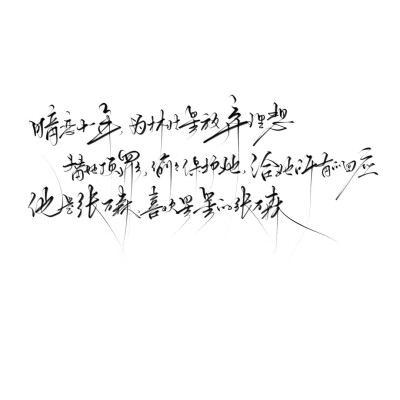 暗恋十年,为林北星放弃理想
替她顶罪,偷偷保护她,给她所有的回应
他是张万森,喜欢星星的张万森